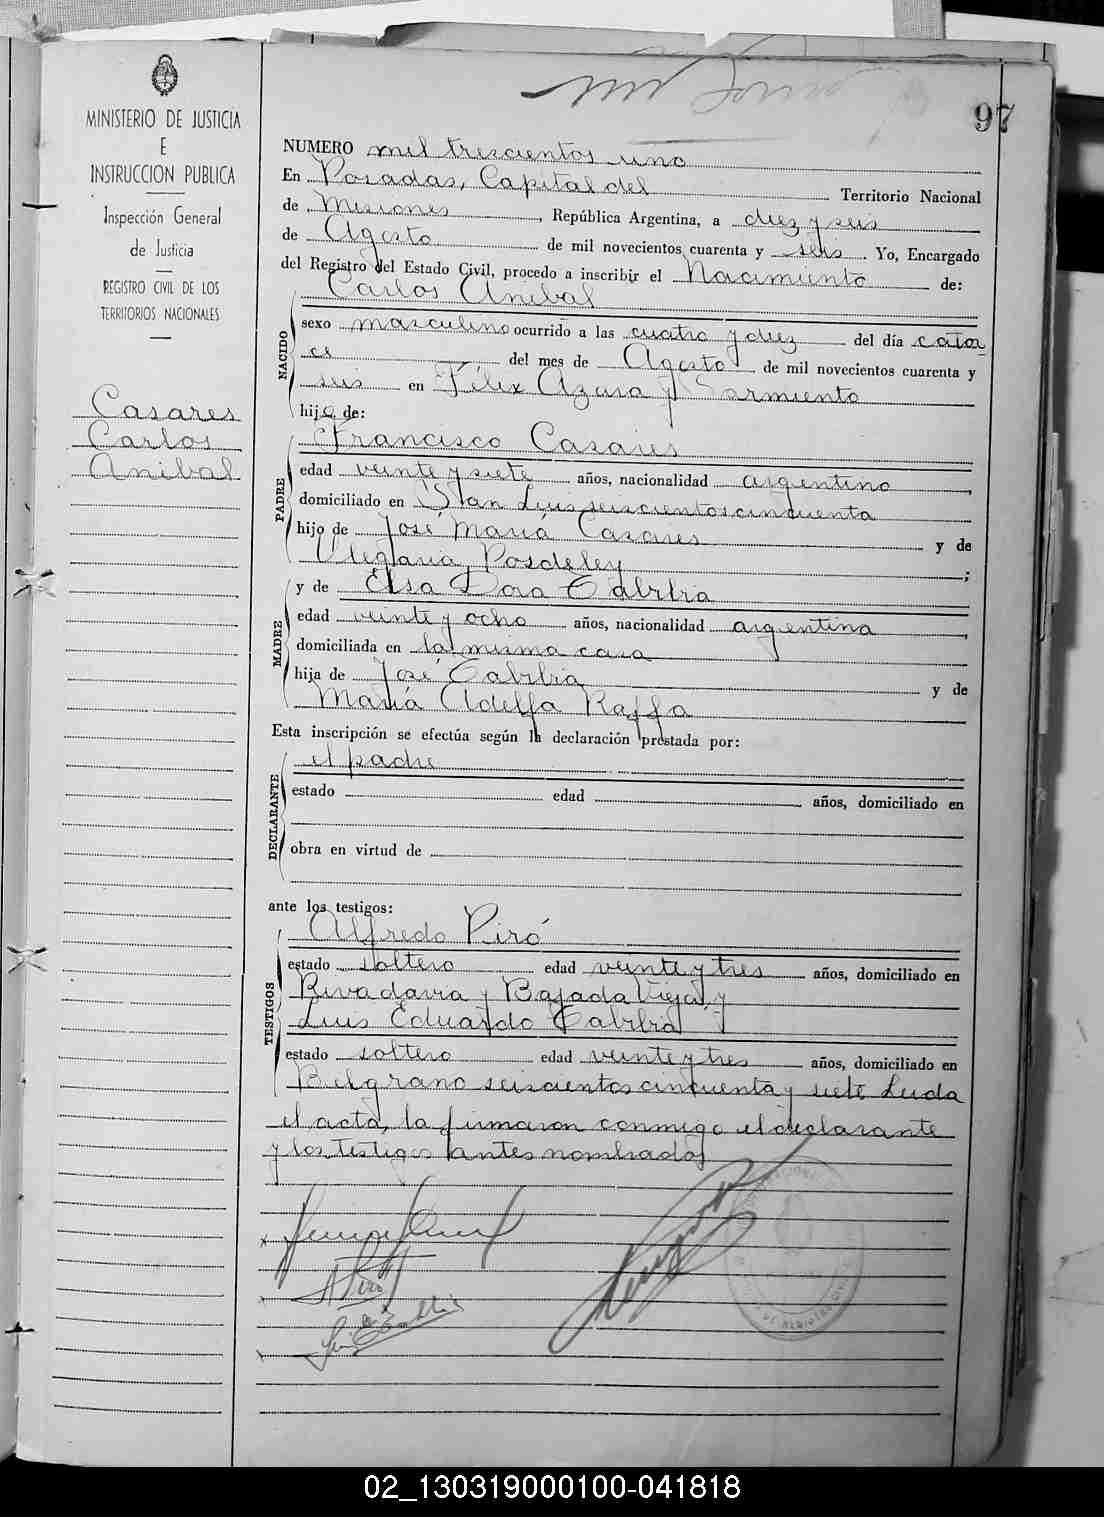 97
MINISTERIO DE JUSTICIA
E
INSTRUCCION PUBLICA
Inspección General
de Justicia
REGISTRO CIVIL DE LOS
TERRITORIOS NACIONALES
Casares
Carlos
Anibal
NUMERO mil trescientos uno
En Posadas, Capital del Territorio Nacional
de Misiones, República Argentina, a diez y seis
de Agosto de mil novecientos cuarenta y seis. Yo, Encargado
del Registro del Estado Civil, procedo a inscribir el Nacimiento de:
Carlos Anibal
NACIDO
sexo masculino ocurrido a las cuatro y diez del día cator
ce del mes de Agosto de mil novecientos cuarenta y
seis en Félix Azara y Sarmiento
hijo de:
Francisco Casares
PADRE
edad veinte y siete años, nacionalidad argentino,
domiciliado en San Luis seiscientos cincuenta
hijo de José María Casares y de
Olegaria Posdeley;
y de Elsa Dora Cabrbia
MADRE
edad veinte y ocho años, nacionalidad argentina,
domiciliada en la misma casa
hija de José Cabrbia y de
María Adelfa Raffa
Esta inscripción se efectúa según la declaración prestada por:
el padre
DECLARANTE
estado edad años, domiciliado en
obra en virtud de
ante los testigos:
Alfredo Piró
TESTIGOS
estado soltero edad veinte y tres años, domiciliado en
Rivadavia y Bajada Vieja, y
Luis Eduardo Cabrbia
estado soltero edad veinte y tres años, domiciliado en
Belgrano seiscientos cincuenta y siete Leida
el acta, la firmaron conmigo el declarante
y los testigos antes nombrados
02_130319000100-041818